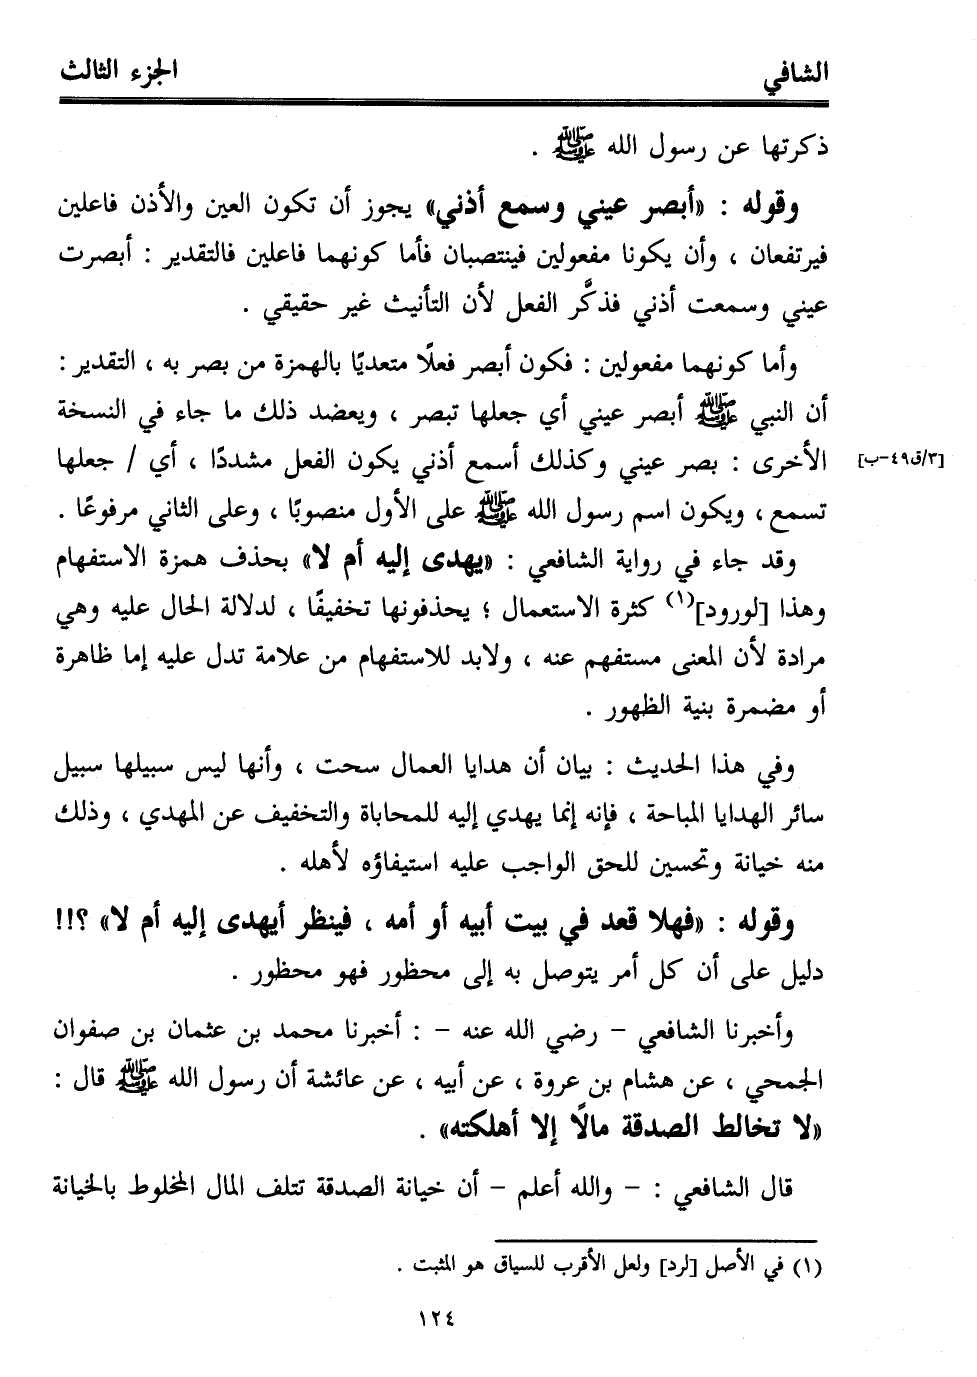 الشافي الجزء الثالث
ذكرتها عن رسول الله ﷺ .
وقوله : «أبصر عيني وسمع أذني» يجوز أن تكون العين والأذن فاعلين
فيرتفعان ، وأن يكونا مفعولين فينتصبان فأما كونهما فاعلين فالتقدير : أبصرت
عيني وسمعت أذني فذكَّر الفعل لأن التأنيث غير حقيقي .
وأما كونهما مفعولين : فكون أبصر فعلًا متعديًا بالهمزة من بصر به ، التقدير :
أن النبي ﷺ أبصر عيني أي جعلها تبصر ، ويعضد ذلك ما جاء في النسخة
الأخرى : بصر عيني وكذلك أسمع أذني يكون الفعل مشددًا ، أي / جعلها [٣/ق٤٩-ب]
تسمع ، ويكون اسم رسول الله ﷺ على الأول منصوبًا ، وعلى الثاني مرفوعًا .
وقد جاء في رواية الشافعي : «يهدى إليه أم لا» بحذف همزة الاستفهام
وهذا [لورود](١) كثرة الاستعمال ؛ يحذفونها تخفيفًا ، لدلالة الحال عليه وهي
مرادة لأن المعنى مستفهم عنه ، ولابد للاستفهام من علامة تدل عليه إما ظاهرة
أو مضمرة بنية الظهور .
وفي هذا الحديث : بيان أن هدايا العمال سحت ، وأنها ليس سبيلها سبيل
سائر الهدايا المباحة ، فإنه إنما يهدي إليه للمحاباة والتخفيف عن المهدي ، وذلك
منه خيانة وتحسين للحق الواجب عليه استيفاؤه لأهله .
وقوله : «فهلا قعد في بيت أبيه أو أمه ، فينظر أيهدى إليه أم لا» ؟!!
دليل على أن كل أمر يتوصل به إلى محظور فهو محظور .
وأخبرنا الشافعي - رضي الله عنه - : أخبرنا محمد بن عثمان بن صفوان
الجمحي ، عن هشام بن عروة ، عن أبيه ، عن عائشة أن رسول الله ﷺ قال :
«لا تخالط الصدقة مالًا إلا أهلكته» .
قال الشافعي : - والله أعلم - أن خيانة الصدقة تتلف المال المخلوط بالخيانة
(١) في الأصل [لرد] ولعل الأقرب للسياق هو المثبت .
١٢٤